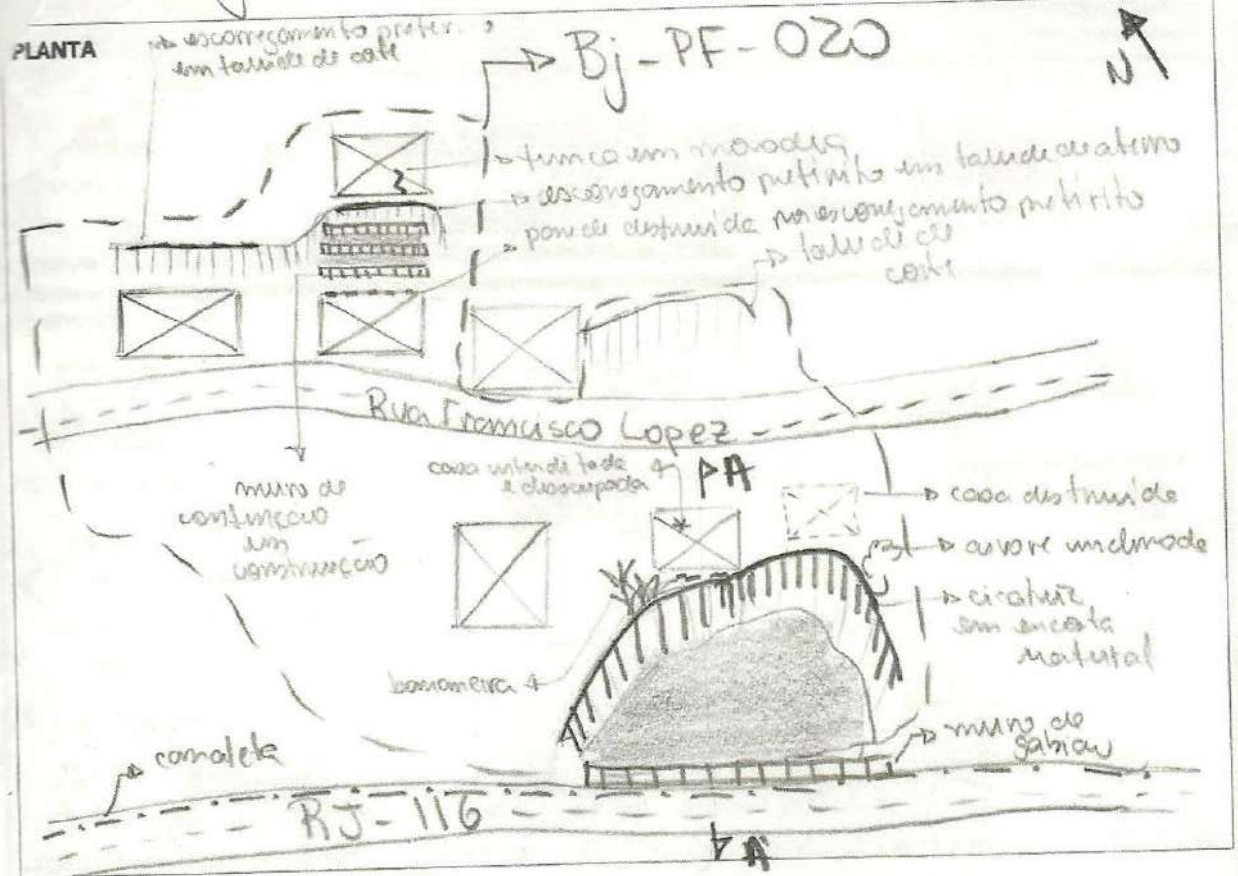 PLANTA
escorregamento
em talude de corte
Bj-PF-020
N
trinca em moradia
escorregamento pretérito em talude de aterro
parede destruída por escorregamento pretérito
talude de
corte
Rua Francisco Lopez
muro de
contenção
em
construção
casa interditada
e desocupada
A
casa destruída
árvore inclinada
cicatriz
em encosta
natural
bananeira
muro de
gabião
canaleta
RJ-116
A